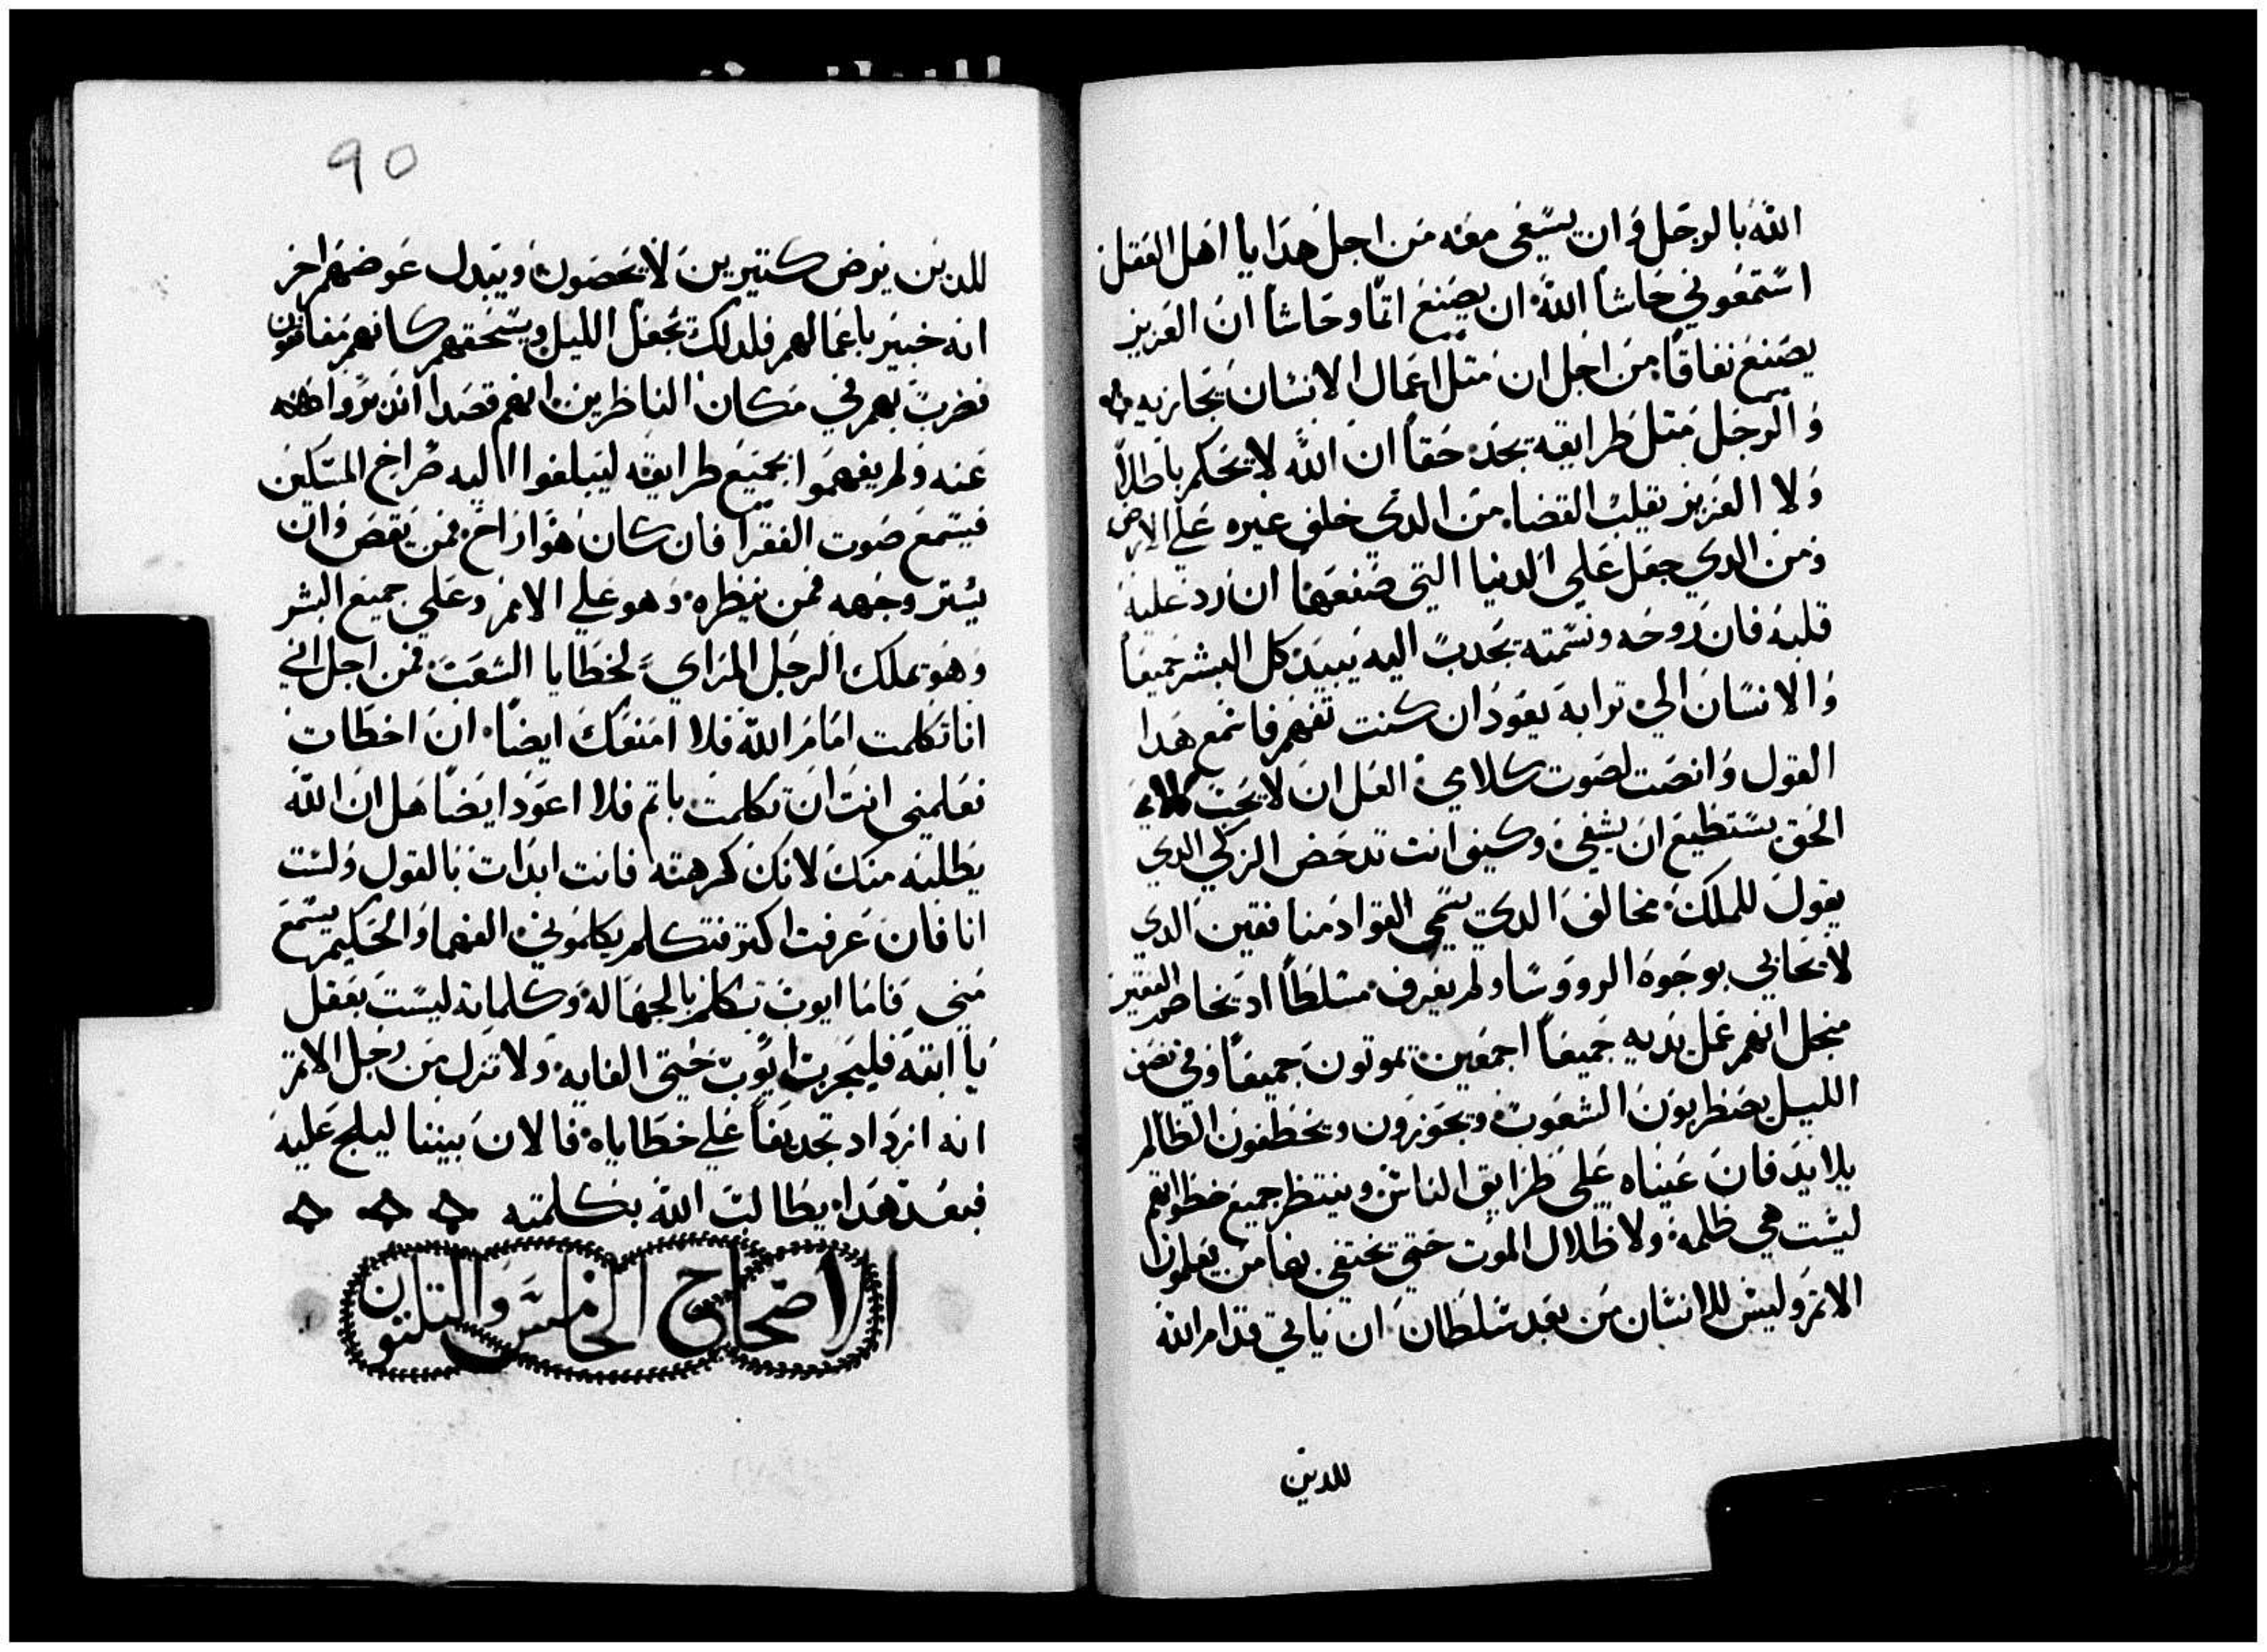 الله بالرجل وان يسعى معه من اجل هدا يا اهل العقل
استمعوني حاشا الله ان يصنع اتما وحاشا ان العزيز
يصنع نفاقا من اجل ان متل اعمال الانسان يجازيه
والرجل متل طرايقه يجد حقا ان الله لا يحكم باطلا
ولا العزيز يقلب القضا من الدي خلف غيره علي الارض
ومن الدي جعل علي الدنيا التي صنعها ان رد عليه
قلبه فان روحه ونسمته يجدب اليه يبيد كل البشر جميعا
والانسان الي ترابه يعود ان كنت تفهم فاسمع هدا
القول وانصت لصوت كلامي العل ان لا يحب
الحق يستطيع ان يشفي وكيف انت تدحض الزكي الدي
يقول للملك مخالف الدي يسمي القواد منافقين الدي
لا يحابي بوجوه الرووسا ولم يعرف متسلطا اد يخاصم الفقير
منجل انهم عمل يديه جميعا اجمعين يموتون جميعا وفي نصف
الليل يضطربون الشعوب ويجوزون ويخطفون الظالم
بلا يد فان عيناه علي طرايق الناس وينتظر جميع خطواتهم
ليست هي ظلمه ولا ظلال الموت حتي تختفي بها من يعملون
الاتم وليس للانسان من بعد سلطان ان ياتي قدام الله
للدين
90
للدين يرض كتيرين لا يحصون ويبدل عوضهم اخر
انه خبير باعمالهم فلدلك تجعل الليل ويسحقهم كانهم منافقون
نضرب بهم في مكان الناظرين انهم قصدا اندبروا
عنه ولم يفهموا بجميع طرايقه ليبلغوا اليه صراخ المسكين
فيسمع صوت الفقرا فان كان هو اراح فمن ينقض وان
يستر وجهه فمن ينظره وهو علي الامم وعلي جميع البشر
وهو يملك الرجل المراي لخطايا الشعب فمن اجل اني
انا تكلمت امام الله فلا امنعك ايضا ان اخطات
تعلمني انت ان تكلمت باتم فلا اعود ايضا هل ان الله
يطلبه منك لانك كرهته فانت ابدات بالقول ولست
انا فان عرفت اكتر فتكلم يكلموني الفهما والحكيم يسمع
مني فاما ايوب تكلم بالجهاله وكلماته ليست بعقل
يا ابته فليجرب ايوب حتي الغايه ولا تزل من رجل الاتم
انه ازداد تجديفا علي خطاياه فالان بيننا ليلج عليه
فبعد هدا يطالب الله بكلمته
الاصحاح الخامس والتلتون